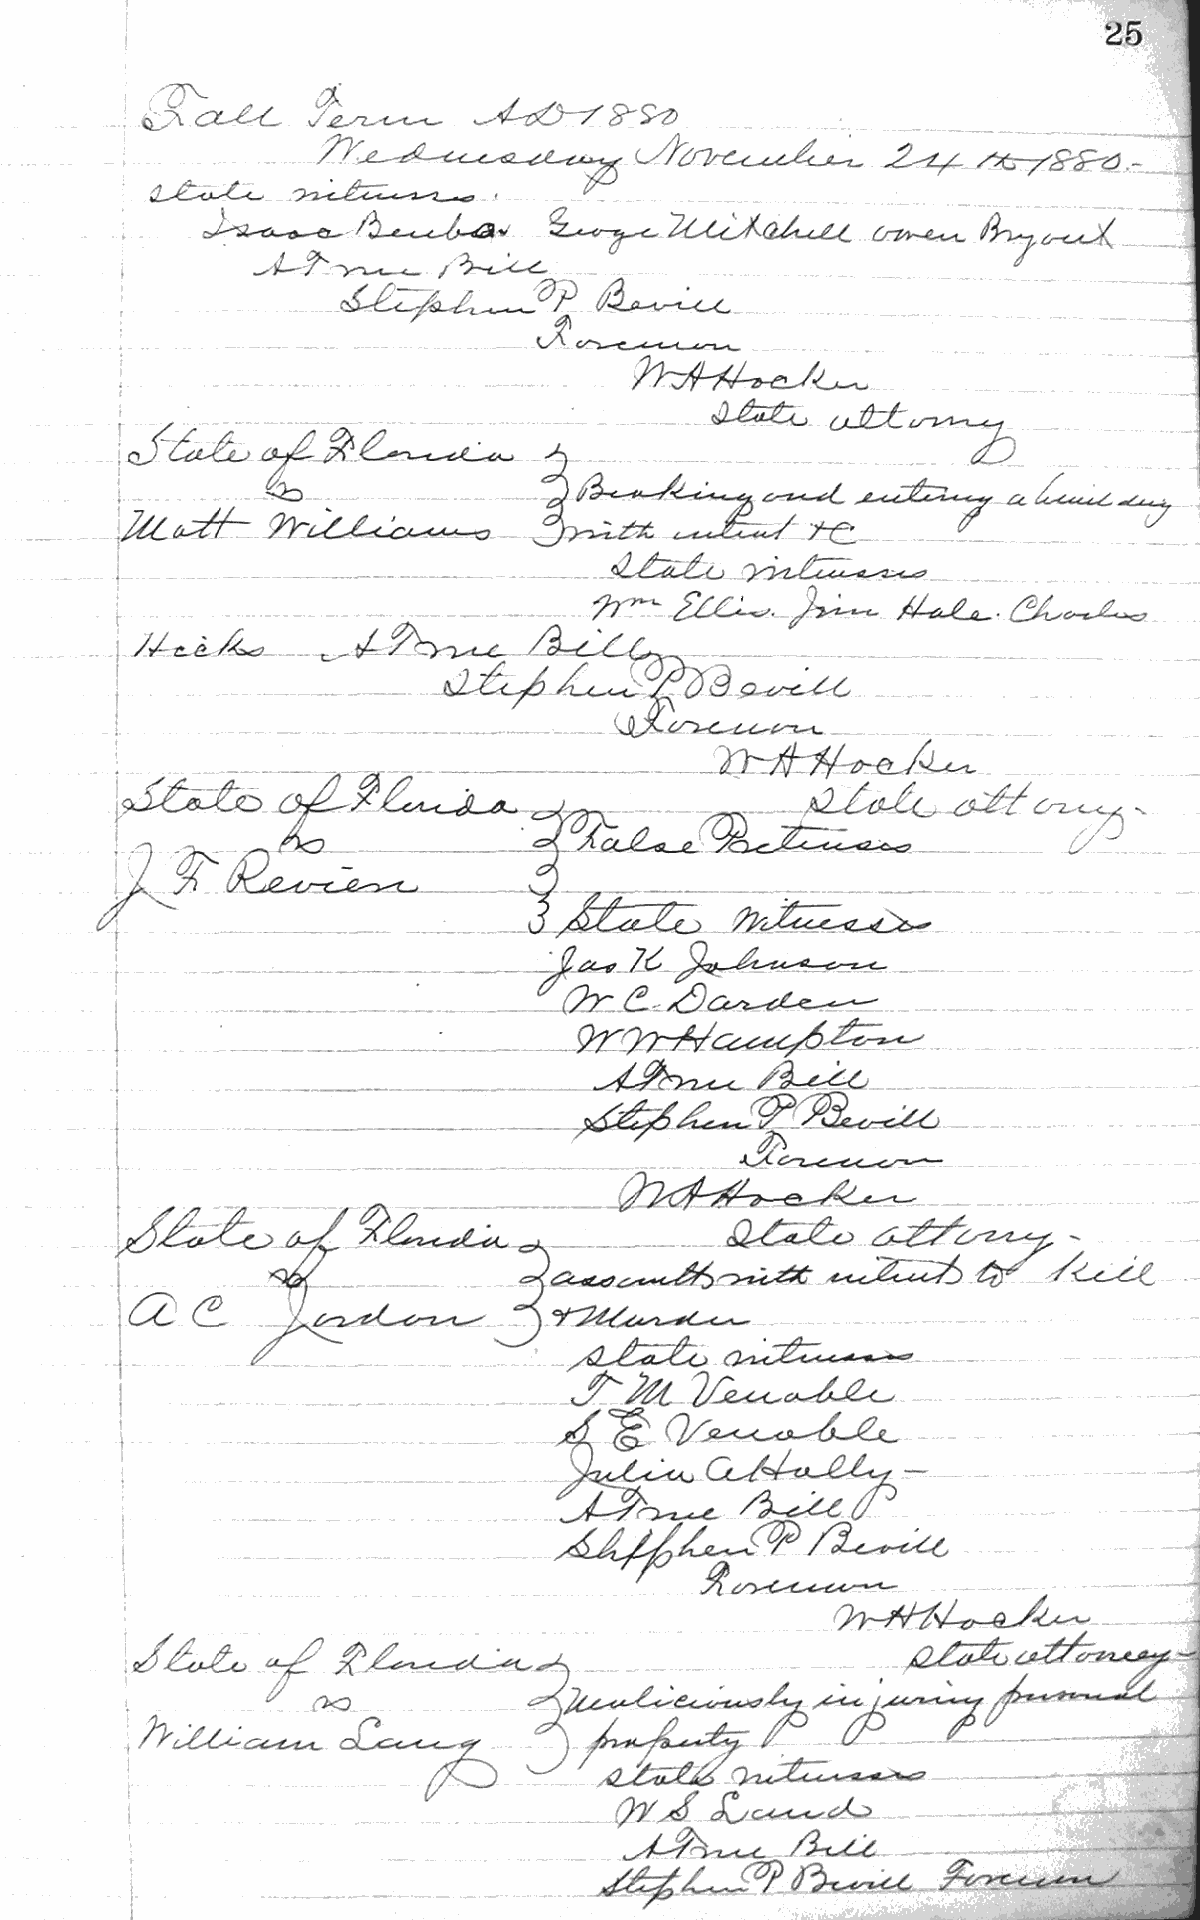 25
Fall Term AD 1880
Wednesday November 24th 1880.-
state witness.
Isaac George Mitchell owen Bryant
A True Bill
Stephen P Bevill
Foreman
W A Hocker
State attorny
State of Florida
vs
Breaking and entering a building
Matt Williams with intent &C
State witnesses
Wm Ellis. Jim Hale. Charles
Hicks A True Bill
Stephen P Bevill
Foreman
W A Hocker
State of Florida State attorny-
vs False Pretenses
J F Revien
State Witnesses
Jas K Johnson
W C Darden
W W Hampton
A True Bill
Stephen P Bevill
Foreman
W A Hocker
State of Florida State attorny-
vs assault with intent to kill
A C Jordon & Murder
state witnesses
T M Venable
S E Venable
Julia A Holly-
A True Bill
Stepphen P Bevill
Foreman
W A Hocker
State of Florida state attorney-
vs Maliciously injuring personal
William Lang property
state witnesses
W S Land
A True Bill
Stephen P Bevill Foreman